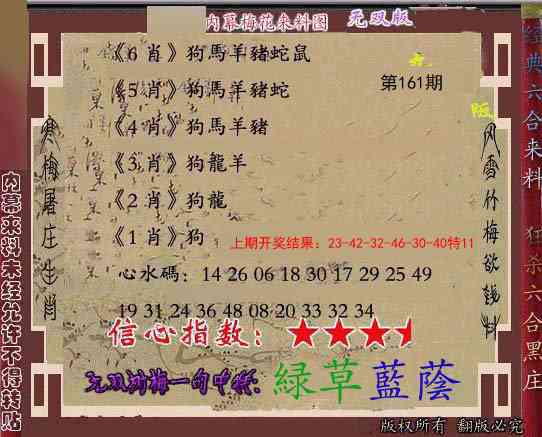 内幕梅花来料图 无双版
《6 肖》狗馬羊豬蛇鼠
《5 肖》狗馬羊豬蛇
第161期
《4 肖》狗馬羊豬
《3 肖》狗龍羊
《2 肖》狗龍
《1 肖》狗
上期开奖结果：23-42-32-46-30-40特11
心水碼：14 26 06 18 30 17 29 25 49
19 31 24 36 48 08 20 33 32 34
信心指数：
无双鸿梅一句中特：緑草藍蔭
版权所有 翻版必究
寒梅屠庄生肖
内幕来料未经允许不得转贴
风雪竹梅欲钱料
经典六合来料
狂杀六合黑庄